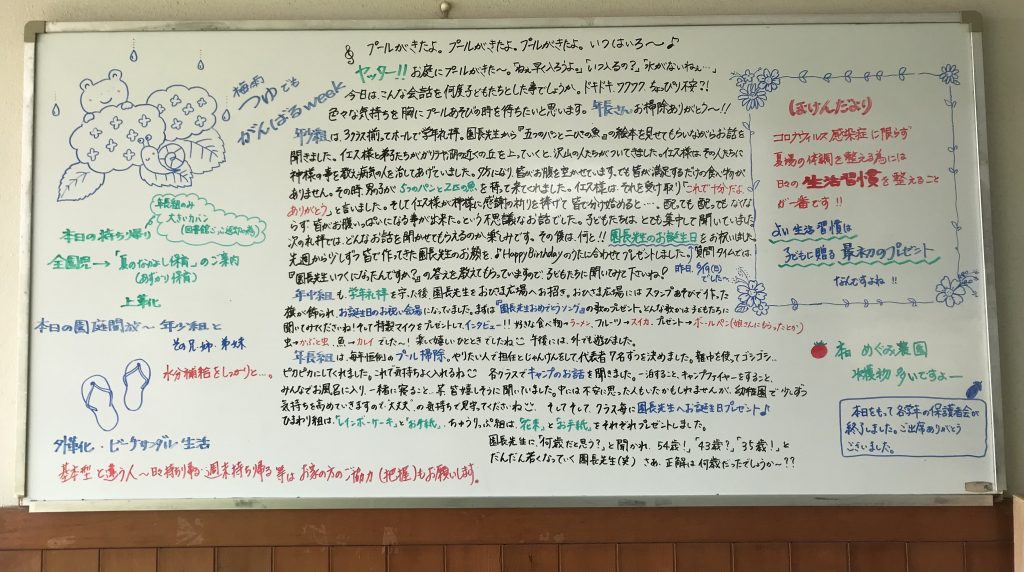 梅雨
つゆでも
がんばるweek
年長組のみ
大きいカバン
本日の持ち帰り
全園児→「夏のなかよし保育」のご案内
(あずかり保育)
上草化
本日の園庭開放～年少組と
その兄姉弟妹
水分補給をしっかりと…。
外草化・ビーチサンダル生活
基本型と違う人～日々持ち帰り、週末持ち帰る等は お家の方のご協力(把握)もお願いします。
プールがきたよ。プールがきたよ。プールがきたよ。いつはいろ～♪
ヤッター!! お庭にプールがきた～。「ねぇ早く入ろうよ。」「いつ入るの？」「水がないねぇ…」
今日は、こんな会話を何度子どもたちとした事でしょうか。ドキドキ、ワクワク、ちょっぴり不安?!
色々な気持ちを胸にプールあそびの時を待ちたいと思います。年長さんお掃除ありがと～!!
年少組は、3クラス揃ってホールで学年礼拝。園長先生から『五つのパンと二ひきの魚』の絵本を見せてもらいながらお話を
聞きました。イエス様と弟子たちがガリラヤ湖の近くの丘を上っていくと、沢山の人たちがついてきました。イエス様は、その人たちに
神様の事を教え、病気の人を治してあげていました。夕方になり、皆がお腹を空かせています。でも皆が満足するだけの食べ物が
ありません。その時、男の子が5つのパンと2匹の魚を持って来てくれました。イエス様は、それを受け取り「これで十分だよ。
ありがとう」と言いました。そしてイエス様が神様に感謝の祈りを捧げて皆で分け始めると…。配っても配ってもなくな
らず皆がお腹いっぱいになる事が出来た。という不思議なお話でした。子どもたちは、とても集中して聞いていました。
次の礼拝では、どんなお話を聞かせてもらえるのか、楽しみです。その後は、何と!! 園長先生のお誕生日をお祝いました。
先週から少しずつ皆で作ってきた園長先生のお顔を、♪Happy Birthdayのうたに合わせてプレゼントしました。質問タイムでは、
『園長先生いつになったんですか？』の答えを教えてもらっていますので、子どもたちに聞いてみて下さいね？ 昨日、6/9(日)
でした～
年中組も、学年礼拝を守った後、園長先生をおひさま広場へお招き。おひさま広場にはスタンプあそびで作った
旗が飾られ、お誕生日のお祝い会場になっていました。まずは「園長先生おめでとうソング」の歌のプレゼント。どんな歌かは子どもたちに
聞いてみてくださいね！そして特製マイクをプレゼントして、インタビュー!! 好きな食べ物→ラーメン、フルーツ→スイカ、プレゼント→ボールペン(娘さんにもらったとか)
虫→かぶと虫、魚→カレイでした～！楽しく嬉しいひとときでしたね 午後には、外でも遊びました。
年長組は、毎年恒例のプール掃除。やりたい人で担任とじゃんけんをして代表者7名ずつを決めました。雑巾を使ってゴシゴシ…
ピカピカにしてくれました。これで気持ちよく入れるね 各クラスでキャンプのお話を聞きました。一泊すること、キャンプファイヤーをすること、
みんなでお風呂に入り、一緒に寝ること…等、皆嬉しそうに聞いていました。中には不安に思った人もいたかもしれませんが、幼稚園で少しずつ
気持ちを高めていきますので"大丈夫"の気持ちで見守ってくださいね そしてそして、クラス毎に園長先生へお誕生日プレゼント♪
ひまわり組は、「レインボーケーキ」と「お手紙」、ちゅうりっぷ組は、「花束」と「お手紙」をそれぞれプレゼントしました。
園長先生に、「何歳だと思う？」と聞かれ、54歳！、「43歳？」、「35歳！」、と
だんだん若くなっていく園長先生(笑) さあ、正解は何歳だったでしょうか～??
ほけんだより
コロナウィルス感染症に限らず
夏場の体調を整える為には
日々の生活習慣を整えること
が一番です!!
よい生活習慣は
子どもに贈る最初のプレゼント
なんですよね!!
本日 めぐみ農園
収穫物 多いですよ―
本日をもって各学年の保護者会が
終了しました。ご出席ありがとう
ございました。